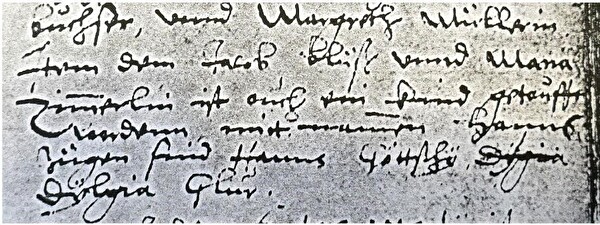 buchser, vnnd Margreth Müllerin
Item dem Jacob Klüß vnnd Maria
Zimmerlin ist ouch ein Kind getoufft
wordenn, mit nammen Hanns,
zügen sind Hanns Göttschÿ,
Dÿlgia Glur.